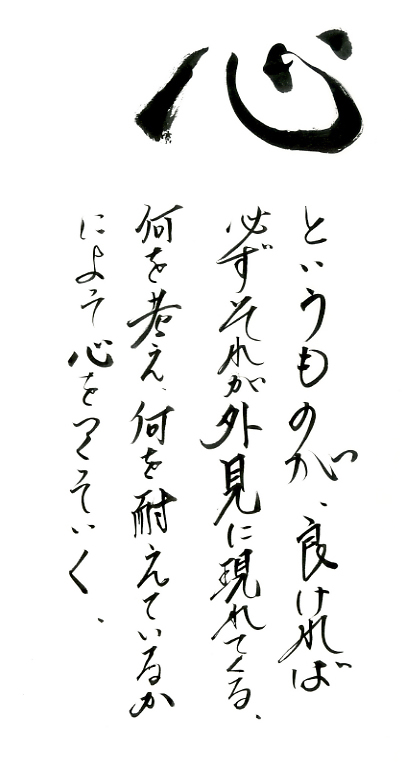 心
というものが、良ければ
必ずそれが外見に現れてくる、
何を考え、何を耐えているか
によって心をつくっていく、